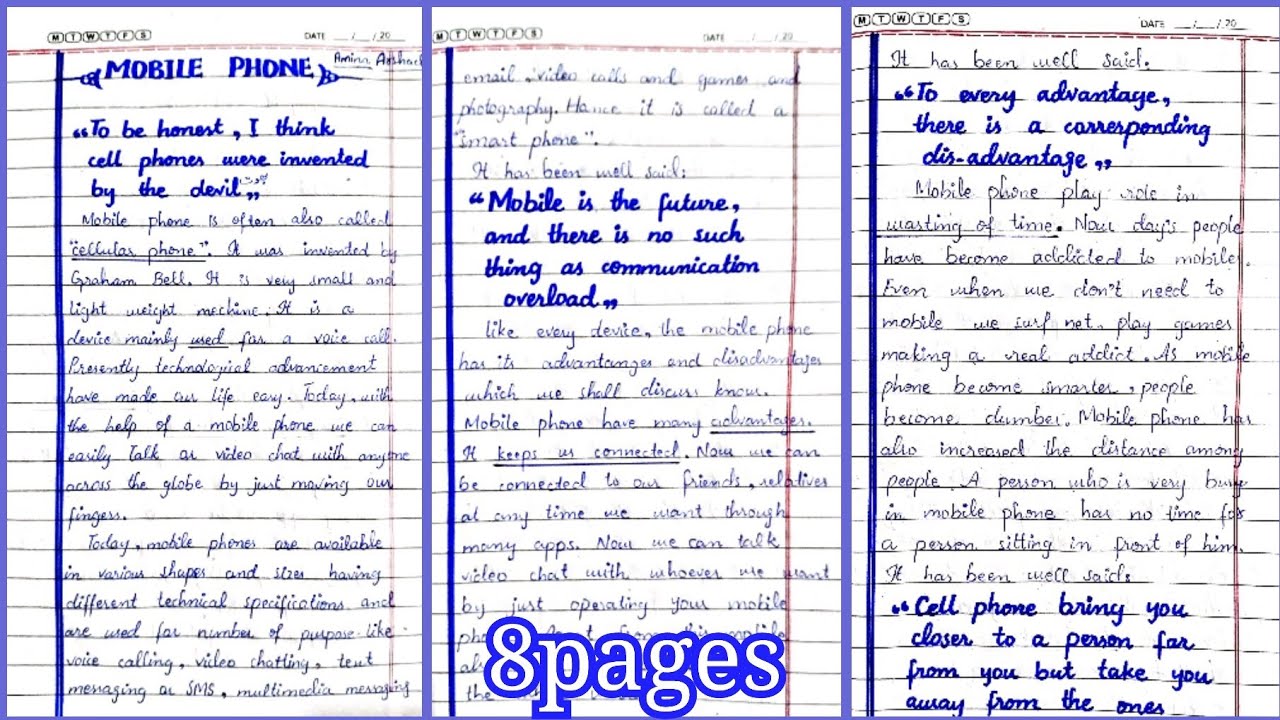 M T W T F S
DATE __/__/20__
Amina
MOBILE PHONE
“To be honest, I think
cell phones were invented
by the devil”
Mobile phone is often also called
"cellular phone". It was invented by
Graham Bell. It is very small and
light weight mechine. It is a
device mainly used for a voice call.
Presently technological advancement
have made our life easy. Today, with
the help of a mobile phone we can
easily Talk or video chat with anyone
across the globe by just moving our
fingers.
Today, mobile phones are available
in various shapes and sizes having
different technical specifications and
are used for number of purpose like
voice calling, video chatting, text
messaging or SMS, multimedia messaging
M T W T F S
DATE __/__/20
email, video calls and games and
photography. Hance it is called a
"smart phone".
It has been well said:
“Mobile is the future,
and there is no such
thing as communication
overload”
like every device, the mobile phone
has its advantanges and disadvantages
which we shall discuss know.
Mobile phone have many advantages.
It keeps us connected. Now we can
be connected to our friends, relatives
at any time we want through
many apps. Now we can talk
video chat with whoever we want
by just operating your mobile
the
8pages
M T W T F S
DATE __/__/20__
It has been well said.
“To every advantage,
there is a corresponding
dis-advantage”
Mobile phone play role in
wasting of time. Now day's people
have become addicted to mobiles.
Even when we don't need to
mobile we surf net, play games
making a real addict. As mobile
phone become smarter, people
become dumber. Mobile phone has
also increased the distance among
people. A person who is very busy
in mobile phone has no time for
a person sitting in front of him.
It has been well said:
“Cell phone bring you
closer to a person far
from you but take you
away from the ones